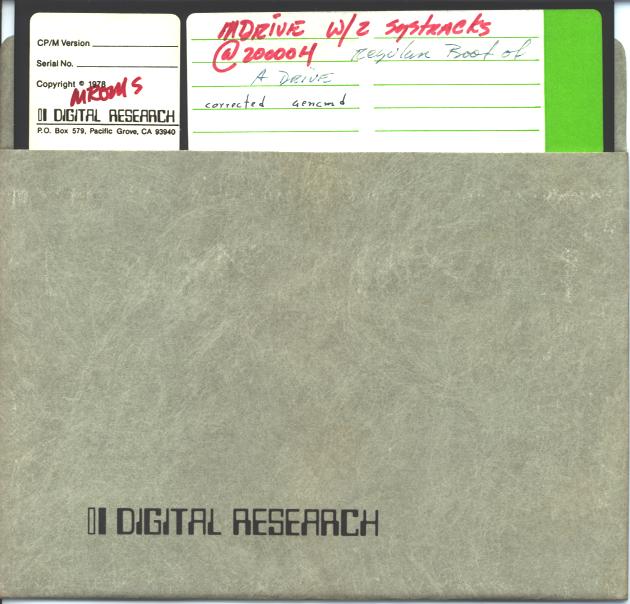 CP/M Version
Serial No.
Copyright © 1978
DIGITAL RESEARCH
P.O. Box 579, Pacific Grove, CA 93940
MDRIVE W/2 SYSTRACKS
@ 200004 Regular Boot of
A DRIVE
corrected gencmd
DIGITAL RESEARCH